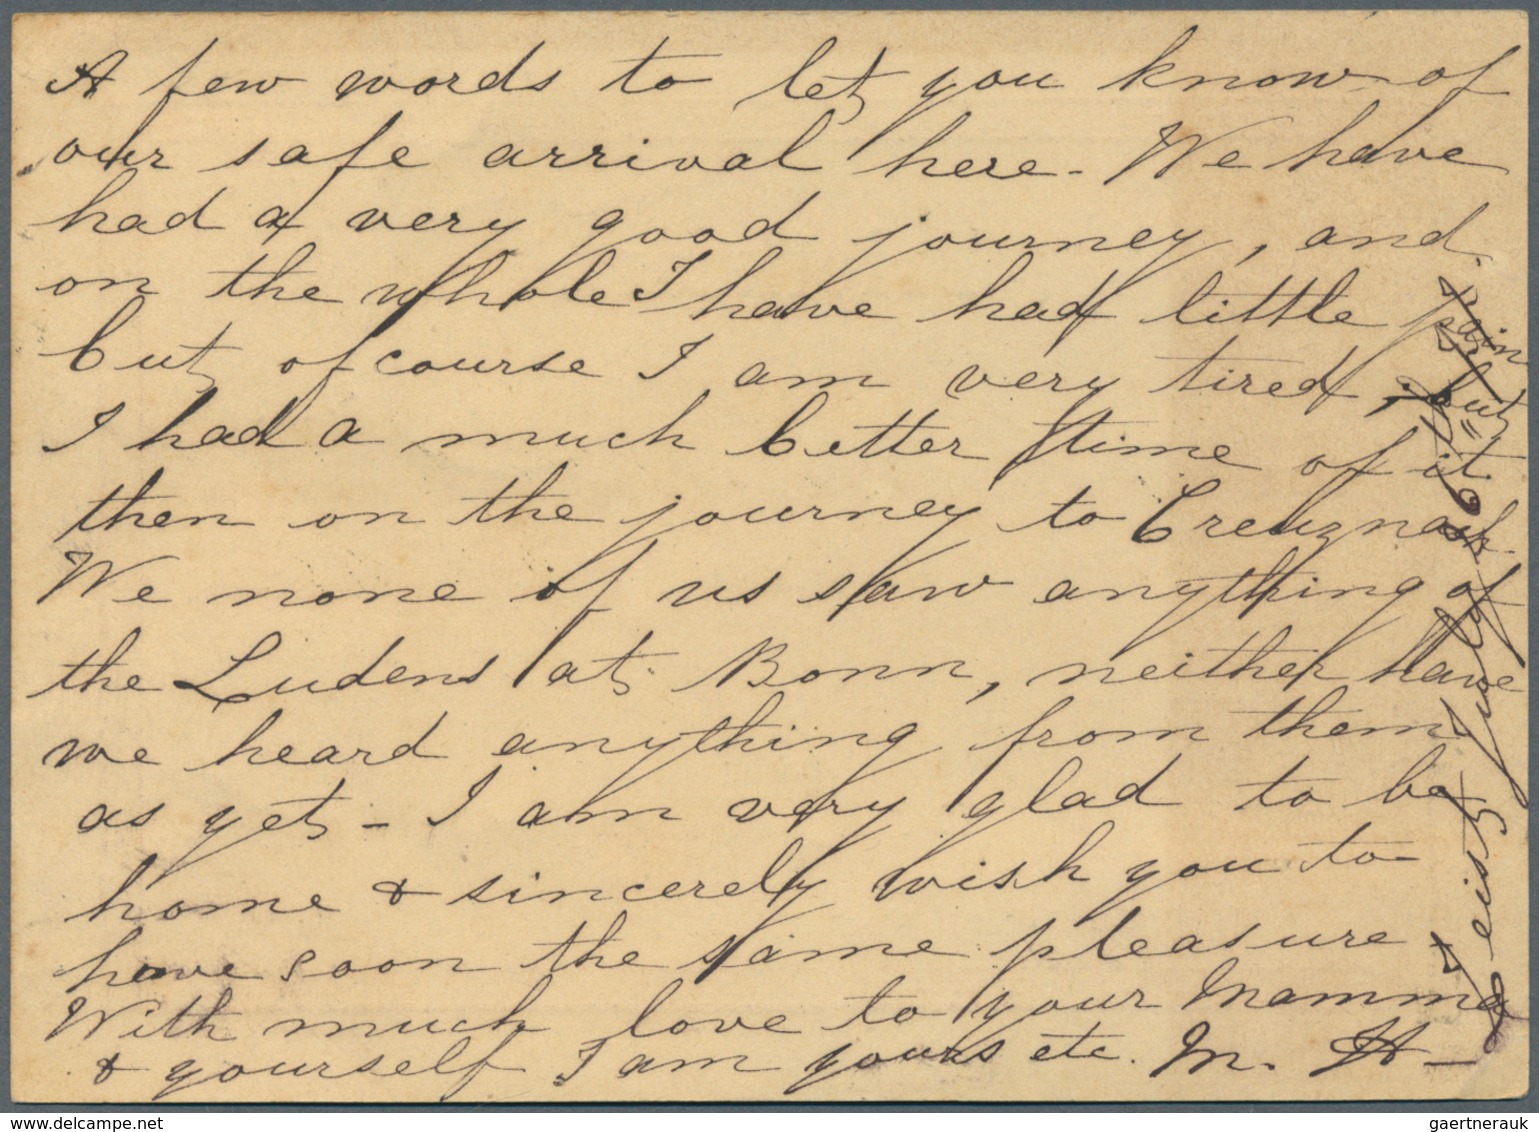 A few words to let you know of
our safe arrival here - We have
had a very good journey, and
on the whole I have had little pain
but of course I am very tired, but
I had a much better time of it
then on the journey to Creuznach
We none of us saw anything of
the Ludens at Bonn, neither have
we heard anything from them
as yet - I am very glad to be
home & sincerely wish you to
have soon the same pleasure
With much love to your Mamma
& yourself I am yours etc. M. H-
July 6
gaertnerauk @ www.delcampe.net